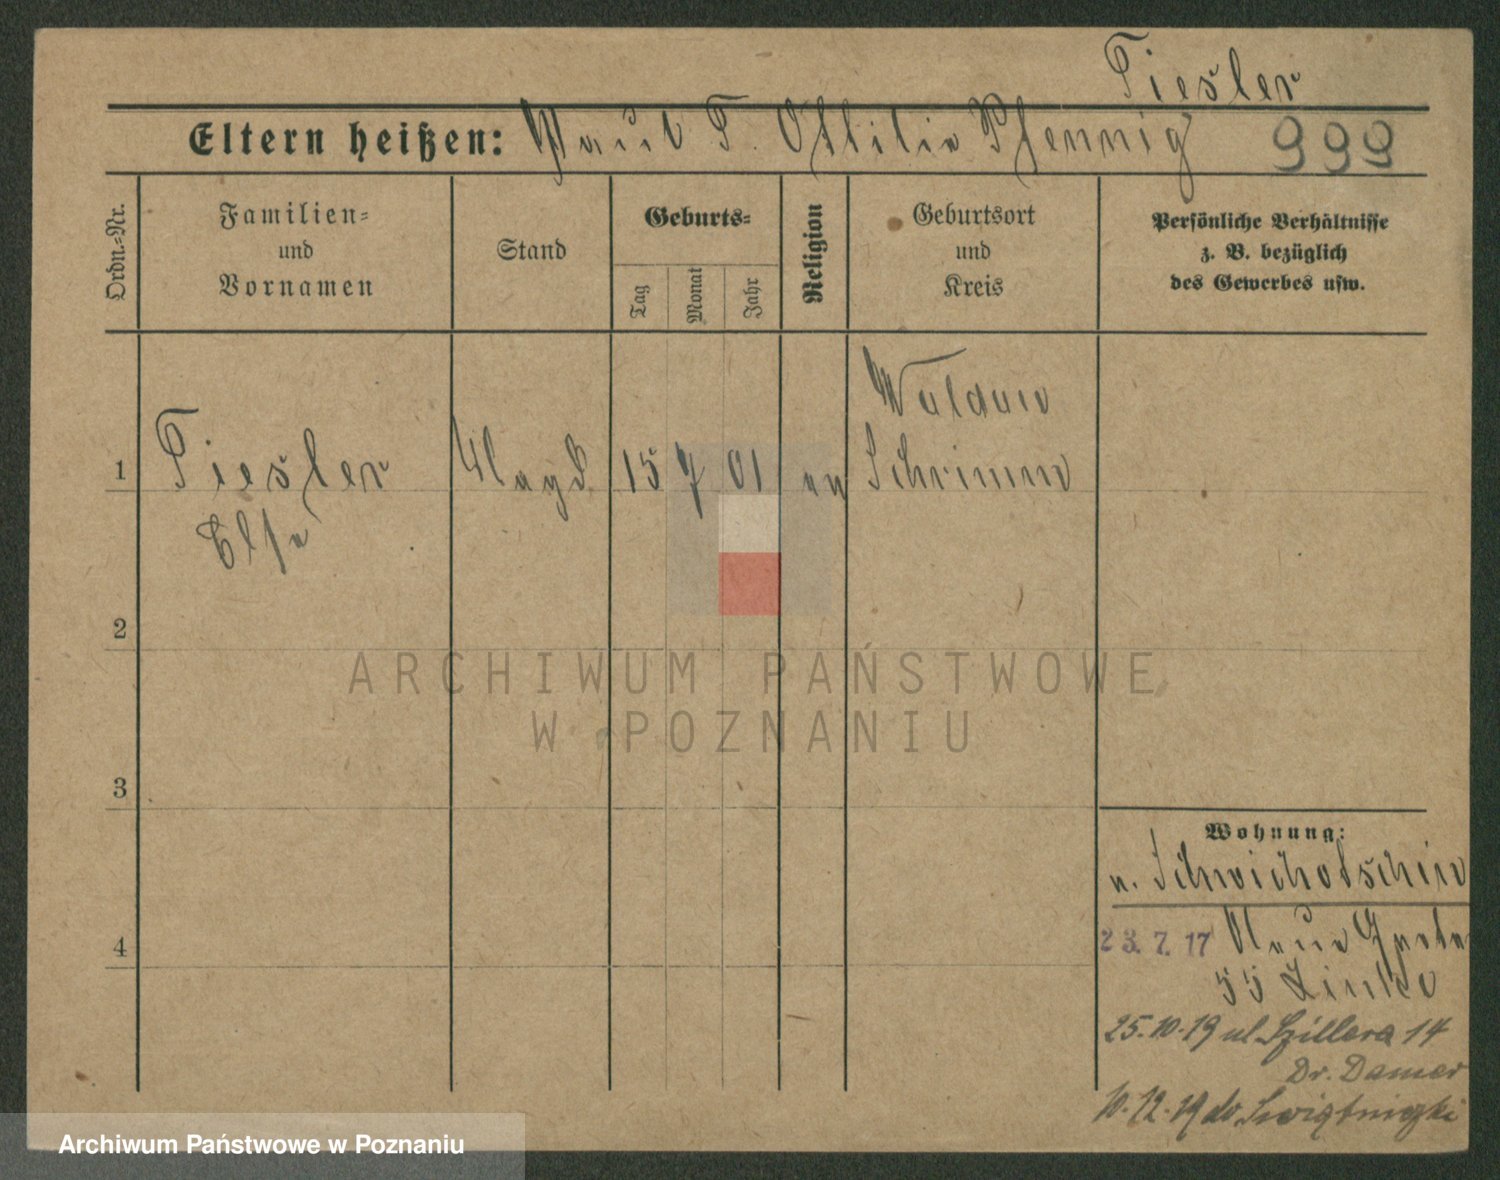 Tiesler
Eltern heißen: Paul T. Ottilie Pfennig 999
Ordn.-Nr.
Familien- und Vornamen
Stand
Geburts-
Tag
Monat
Jahr
Religion
Geburtsort und Kreis
Persönliche Verhältnisse
z. B. bezüglich
des Gewerbes usw.
Waldau
1 Tiesler Magd 15 7 01 ev Schrimm
Else
2
ARCHIWUM PAŃSTWOWE
W POZNANIU
3
Wohnung:
v.
23. 7. 17 Neue
4
55 Zinke
25.10.19 ul. 14
Dr.
10.12.19 do
Archiwum Państwowe w Poznaniu